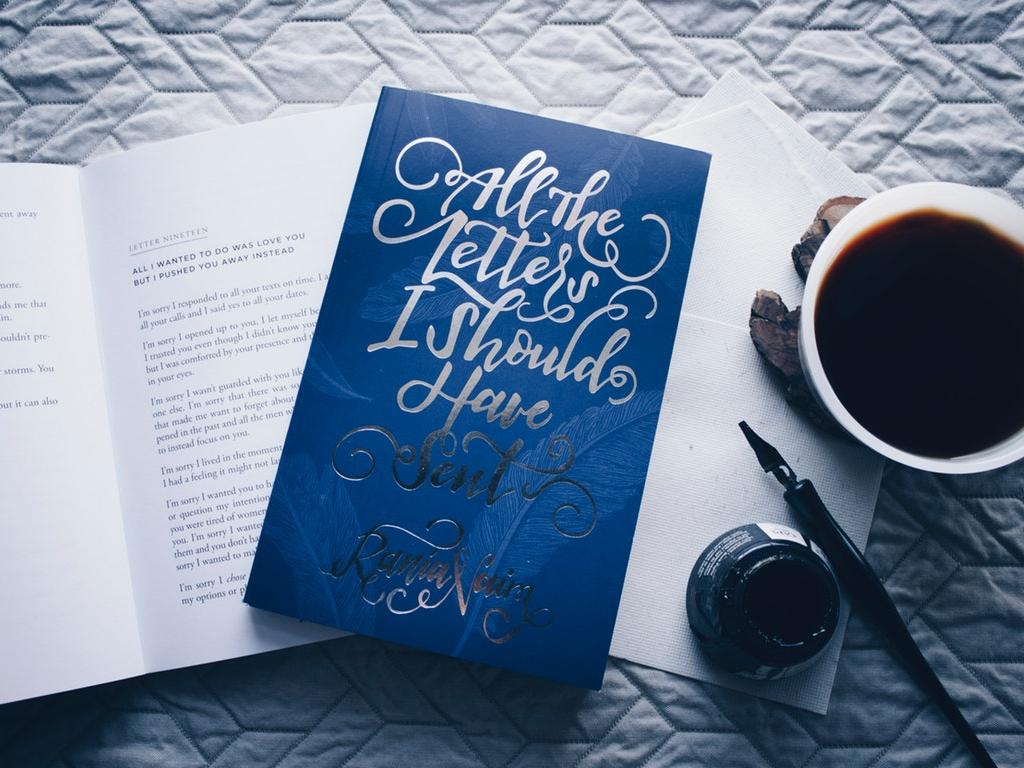 ent away
more.
ds me that
in.
ouldn't pre-
storms. You
but it can also
LETTER NINETEEN
ALL I WANTED TO DO WAS LOVE YOU
BUT I PUSHED YOU AWAY INSTEAD
I'm sorry I responded to all your texts on time. I
all your calls and I said yes to all your dates.
I'm sorry I opened up to you. I let myself be
I trusted you even though I didn't know you
but I was comforted by your presence and
in your eyes.
I'm sorry I wasn't guarded with you lik
one else. I'm sorry that there was so
that made me want to forget about
pened in the past and all the men w
to instead focus on you.
I'm sorry I lived in the moment
I had a feeling it might not las
I'm sorry I wanted you to h
or question my intention
you were tired of women
you. I'm sorry I wante
them and you don't ha
sorry I wanted to ma
I'm sorry I chose
my options or p
All the
Letters
I Should
Have
Sent
Rania Naim